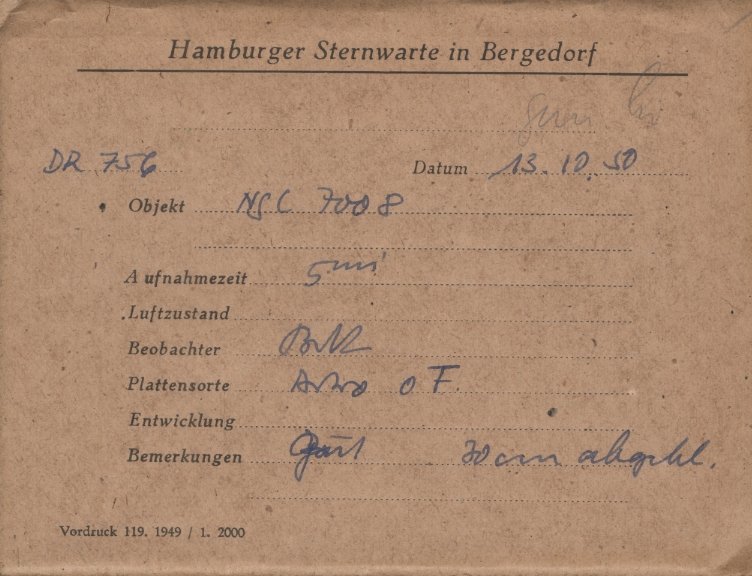 Hamburger Sternwarte in Bergedorf
DR 756 Datum 13.10.50
Objekt NGC 7008
Aufnahmezeit 5 min
Luftzustand
Beobachter
Plattensorte Astro o F.
Entwicklung
Bemerkungen Gut 30cm abgebl.
Vordruck 119. 1949 / 1. 2000